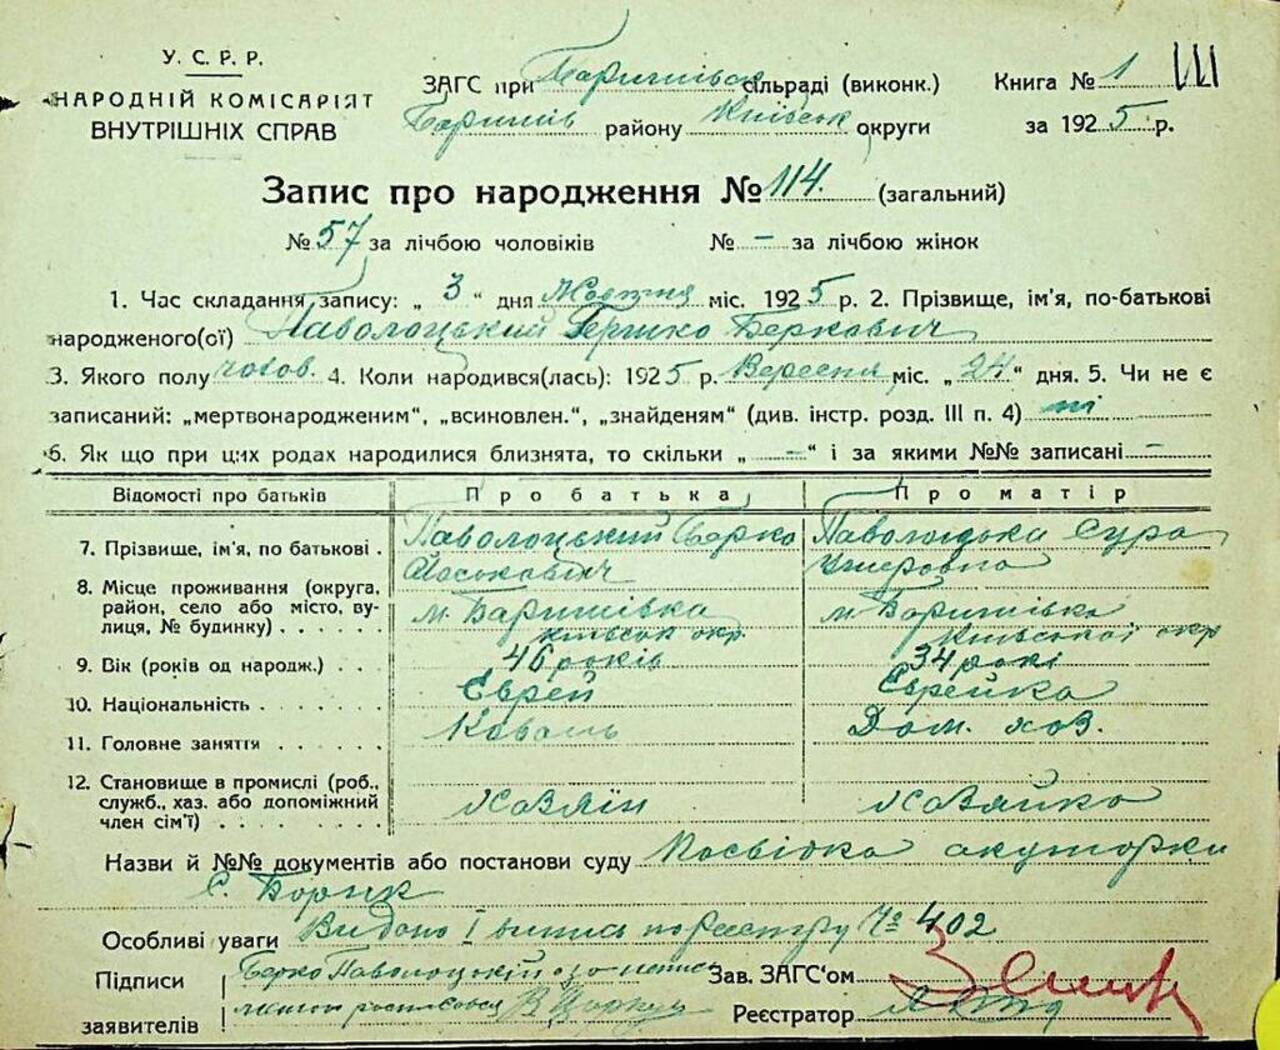 У. С. Р. Р.
НАРОДНІЙ КОМІСАРІЯТ
ВНУТРІШНІХ СПРАВ
ЗАГС при Баришівськ сільраді (виконк.)
Баришів району Київськ округи
Книга № 1 III
за 1925 р.
Запис про народження № 114. (загальний)
№ 57 за лічбою чоловіків № – за лічбою жінок
1. Час складання запису: „ 3 “ дня Жовтня міс. 1925 р. 2. Прізвище, ім'я, по-батькові
народженого(ої) Паволоцький Гершко Беркович
3. Якого полу чолов. 4. Коли народився(лась): 1925 р. Вересня міс. „ 24 “ дня. 5. Чи не є
записаний: „мертвонародженим“, „всиновлен.“, „знайденям“ (див. інстр. розд. III п. 4) ні
6. Як що при цих родах народилися близнята, то скільки „ – “ і за якими №№ записані –
Відомості про батьків Про батька Про матір
7. Прізвище, ім'я, по батькові . Паволоцький Берко Паволоцька Сура
Йоськович
8. Місце проживання (округа,
район, село або місто, ву-
лиця, № будинку) . . . . . . м. Баришівка м. Баришівка
київськ окр. Київської окр
9. Вік (років од народж.) . . . 46 років 34 рокі
10. Національність . . . . . . . Єврей Єврейка
11. Головне заняття . . . . . . Коваль Дом. хоз.
12. Становище в промислі (роб.,
служб., хаз. або допоміжний
член сім'ї) . . . . . . . . . Хозяїн Хозяйка
Назви й №№ документів або постанови суду Посвідка акушорки
С. Борик
Особливі уваги Видано I випись по реєстру № 402
Підписи Берко Паволоцький а за
заявителів росписався
Зав. ЗАГС'ом
Реєстратор